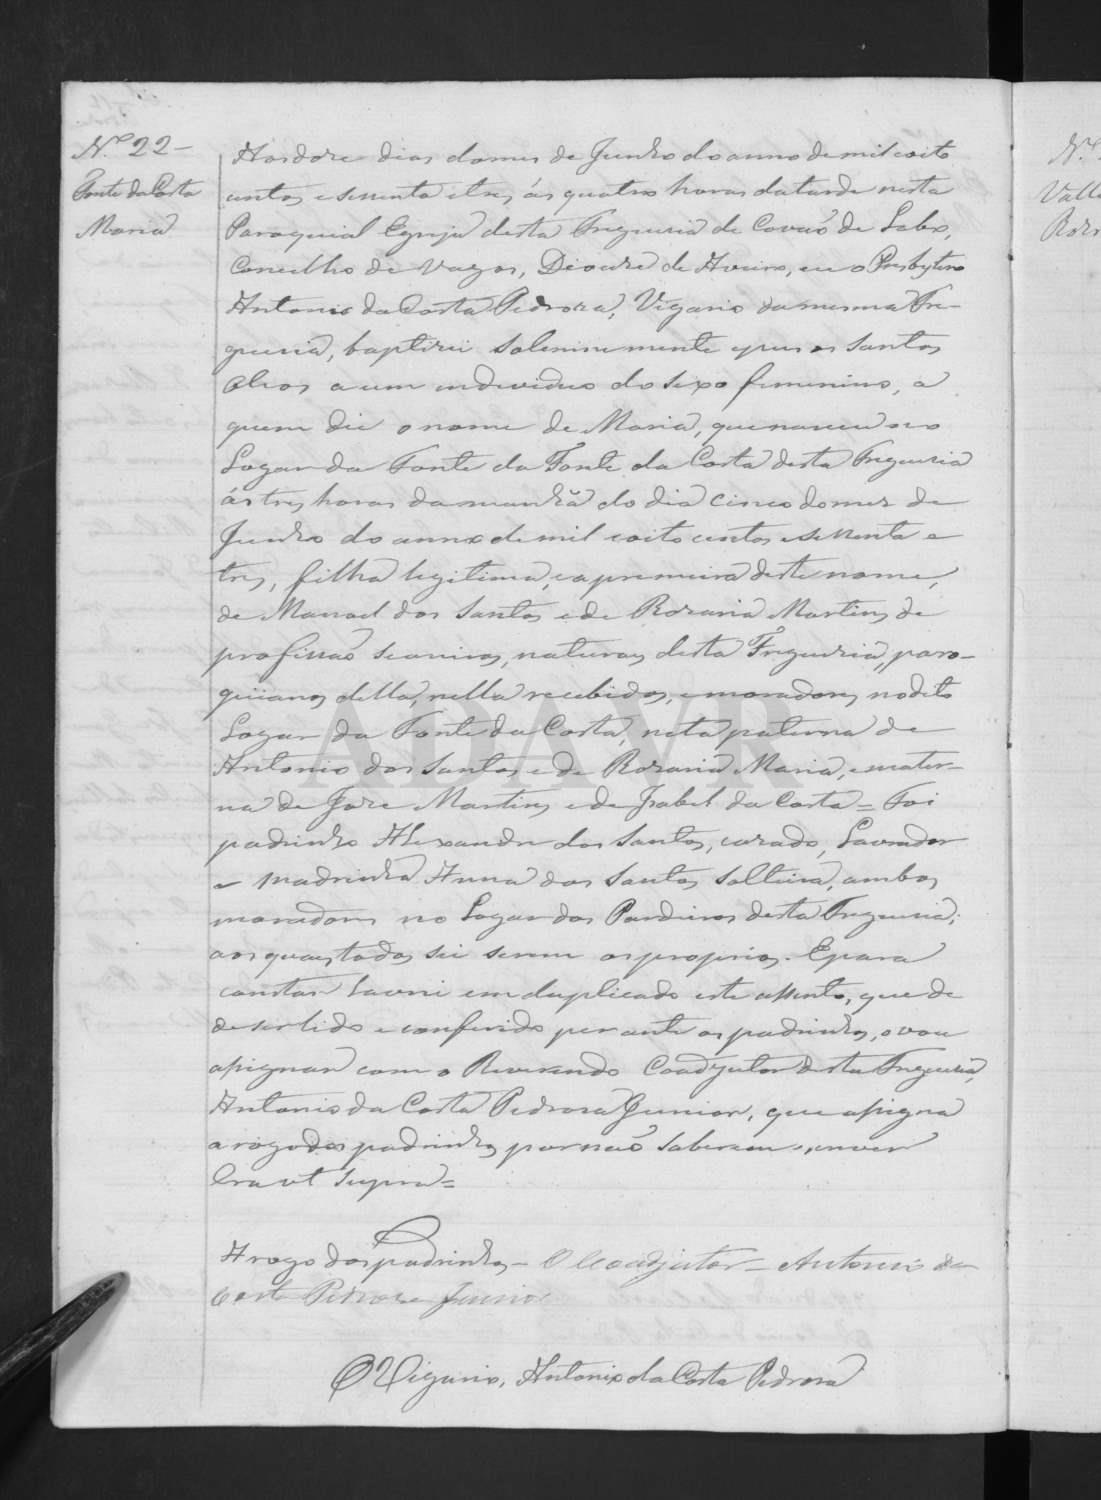 N.º 22 –
Fonte da Costa
Maria
Aos doze dias do mes de Junho do anno de mil e oito
centos e sessenta e tres, ás quatro horas da tarde nesta
Paroquial Egreja desta Freguesia de Covão do Lobo,
Concelho de Vagos, Diocese de Aveiro, eu o Presbytero
Antonio da Costa Pedroza, Vigario da mesma Fre-
guesia, baptizei solemnemente e pus os santos
Oleos a um individuo do sexo femenino, a
quem dei o nome de Maria, que nasceu no
Logar da Fonte da Fonte da Costa desta Freguesia
ás tres horas da manhã do dia cinco do mez de
Junho do anno de mil e oito centos e sessenta e
tres, filha legitima, e a premeira deste nome,
de Manoel dos Santos e de Rozaria Martins de
profissão seareiros, naturaes desta Freguezia, paro-
quianos della, nella recebidos, e moradores no dito
Logar da Fonte da Costa, neta paterna de
Antonio dos Santos e de Rozaria Maria, e mater-
na de Joze Martins e de Izabel da Costa = Foi
padrinho Alexandre dos Santos, cazado, Lavrador
e Madrinha Anna dos Santos solteira, ambos
moradores no Logar dos Pardieiros desta Freguesia;
aos quaes todos sei serem os proprios. E para
constar lavrei em duplicado este assento, que de
de ser lido e conferido perante os padrinhos, o vou
assignar com o Reverendo Coadjutor desta Freguesia,
Antonio da Costa Pedroza Junior, que assigna
a rogo dos padrinhos por não saberem escrever
Era ut supra =
A rogo dos padrinhos – O Coadjutor – Antonio da
Costa Pedroza Junior
O Vigario, Antonio da Costa Pedroza
ADAVR
N.º
Valle